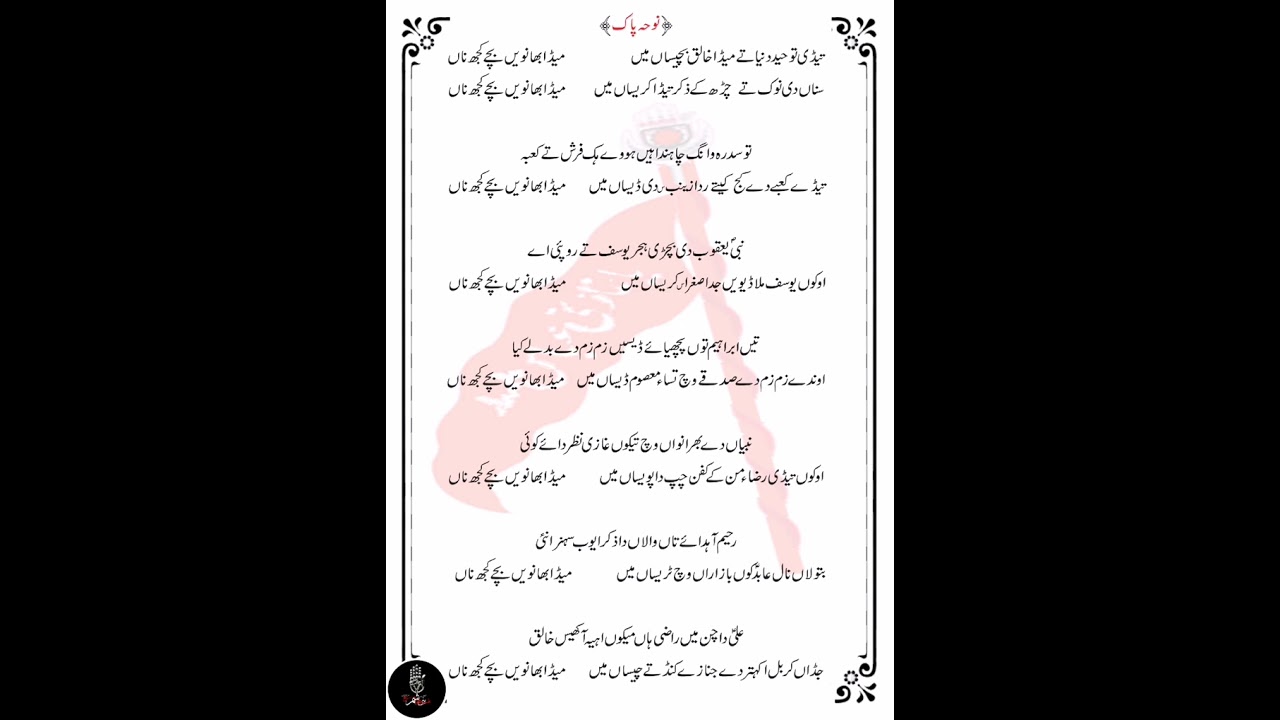 نوحہ پاک
تیڈی توحید دنیا تے میڈا خالق بچیساں میں میڈا بھانویں بچے کجھ ناں
سناں دی نوک تے چڑھ کے ذکر تیڈا کریساں میں میڈا بھانویں بچے کجھ ناں
تو سدرہ وانگ چاہندا ہیں ہووے ہک فرش تے کعبہ
تیڈے کعبے دے کج کیتے ردا زینب دی ڈیساں میں میڈا بھانویں بچے کجھ ناں
نبیؑ یعقوب دی بچڑی ہجر یوسف تے روپئی اے
اوکوں یوسف ملا ڈیویں جدا صغرا کریساں میں میڈا بھانویں بچے کجھ ناں
تیں ابراہیم توں پچھیائے ڈیسیں زم زم دے بدلے کیا
اوندے زم زم دے صدقے وچ تساء معصوم ڈیساں میں میڈا بھانویں بچے کجھ ناں
نبیاں دے بھرانواں وچ تیکوں غازی نظردائے کوئی
اوکوں تیڈی رضاء من کے کفن چپ دا پویساں میں میڈا بھانویں بچے کجھ ناں
رحیم آہدائے تاں والاں دا ذکر ایوب سہنرانئی
بتولاں نال عابدؑ کوں بازاراں وچ ٹریساں میں میڈا بھانویں بچے کجھ ناں
علیؑ دا چن میں راضی ہاں میکوں اہیہ آکھیس خالق
جڈاں کربل اکہتر دے جنازے کنڈ تے چیساں میں میڈا بھانویں بچے کجھ ناں